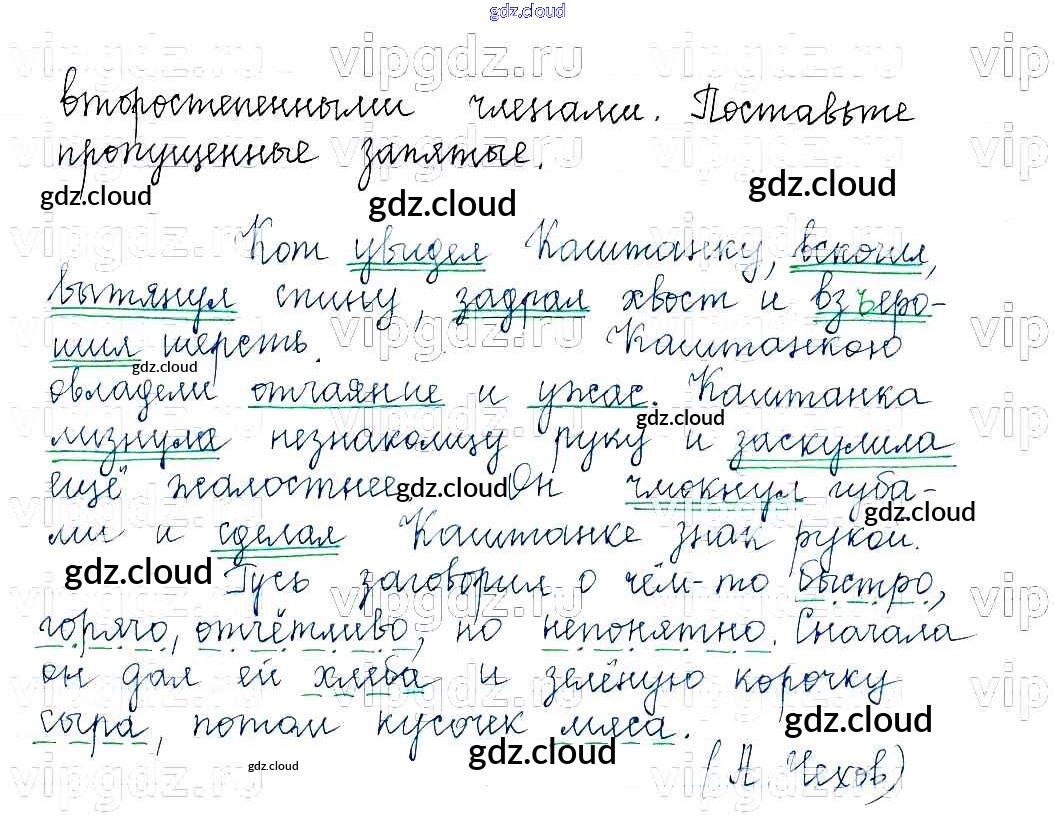 gdz.cloud
второстепенными членами. Поставьте
пропущенные запятые.
Кот увидел Каштанку, вскочил,
вытянул спину, задрал хвост и взъеро-
шил шерсть. Каштанкою
овладели отчаяние и ужас. Каштанка
лизнула незнакомцу руку и заскулила
ещё жалостнее. Он чмокнул губа-
ми и сделал Каштанке знак рукой.
Гусь заговорил о чём-то быстро,
горячо, отчётливо, но непонятно. Сначала
он дал ей хлеба и зелёную корочку
сыра, потом кусочек мяса.
(А. Чехов)
vipgdz.ru
gdz.cloud